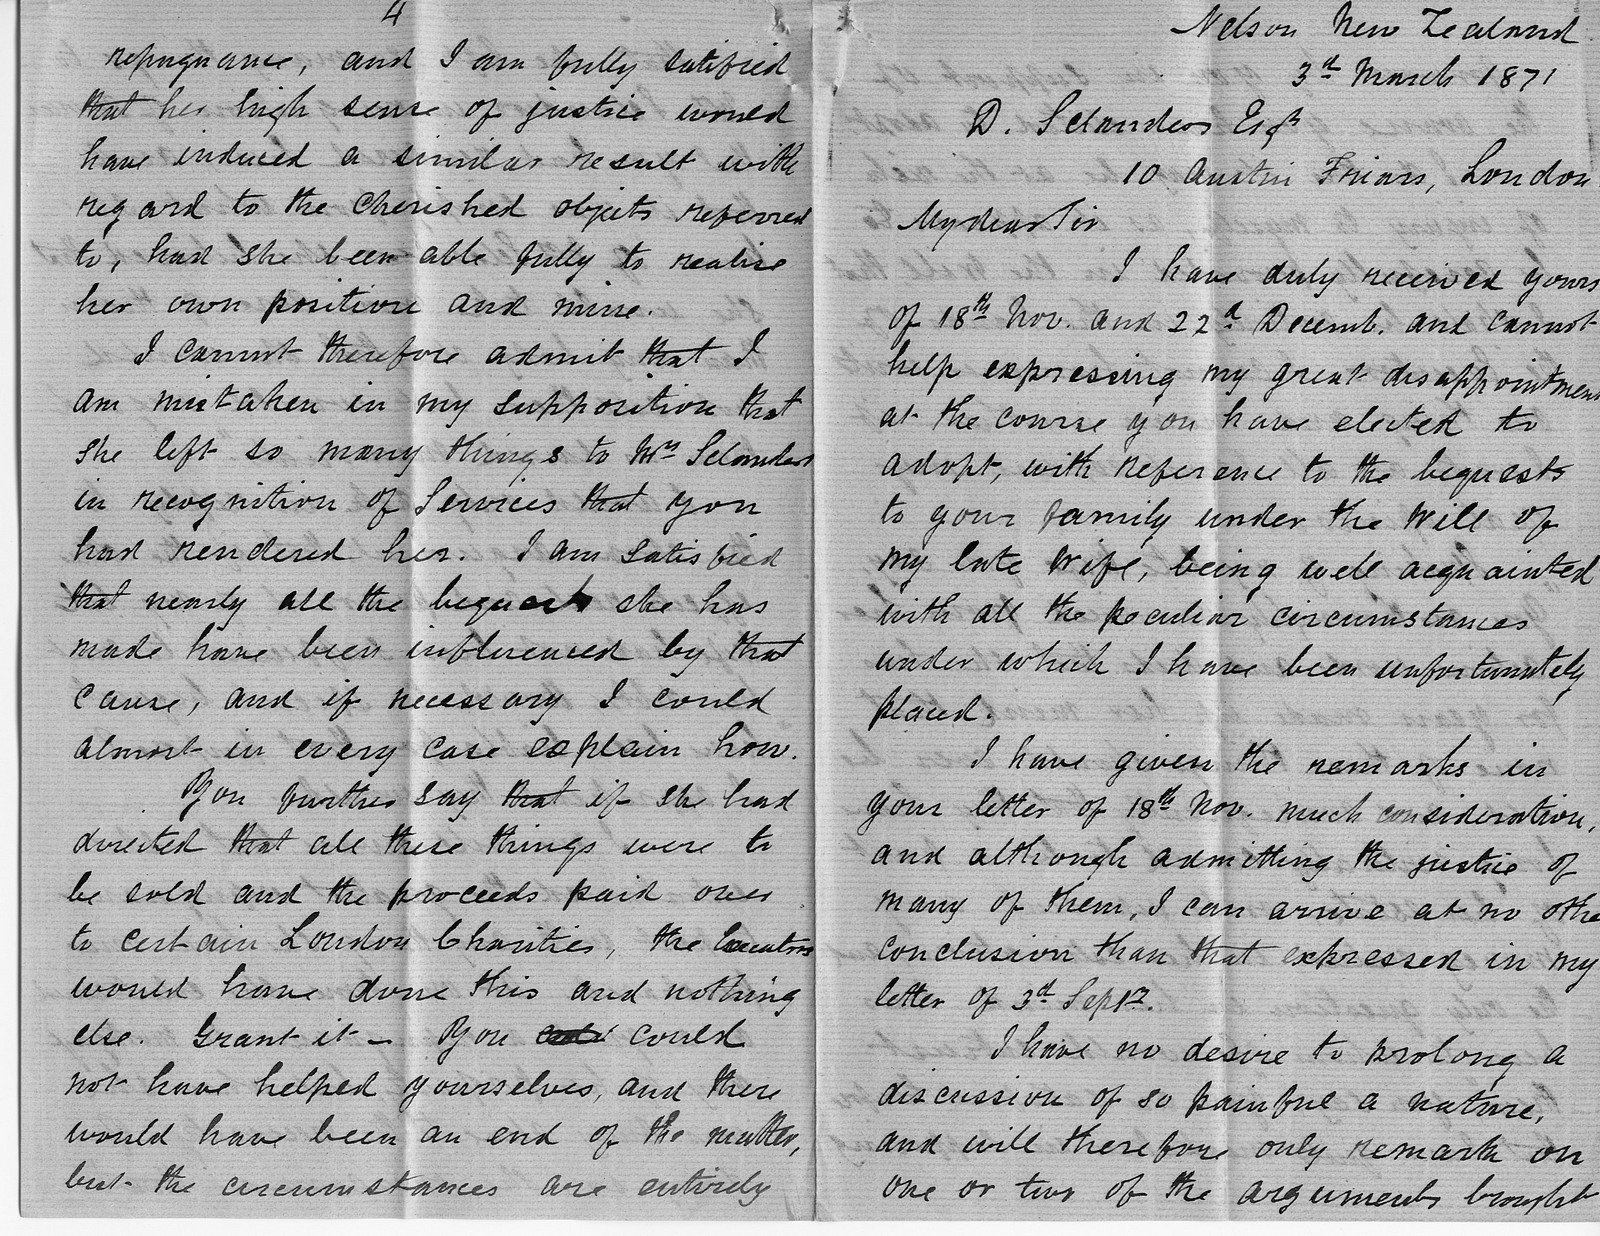 4
repugnance, and I am fully satisfied
that her high sense of justice would
have induced a similar result with
regard to the cherished objects referred
to, had she been able fully to realise
her own position and mine.
I cannot therefore admit that I
am mistaken in my supposition that
she left so many things to Mrs Selanders
in recognition of Services that you
had rendered her. I am satisfied
that nearly all the bequests she has
made have been influenced by that
cause, and if necessary I could
almost in every case explain how.
You further say that if she had
directed that all these things were to
be sold and the proceeds paid over
to certain London Charities, the Executors
would have done this and nothing
else. Grant it - You could
not have helped yourselves, and there
would have been an end of the matter,
but the circumstances are entirely
Nelson New Zealand
3d March 1871
D. Selanders Esqr
10 Austin Friars, London
My dear Sir
I have duly received yours
of 18th Nov. and 22d Decemb. and cannot
help expressing my great disappointment
at the course you have elected to
adopt, with reference to the bequests
to your family under the Will of
my late Wife, being well acquainted
with all the peculiar circumstances
under which I have been unfortunately
placed.
I have given the remarks in
your letter of 18th Nov. much consideration,
and although admitting the justice of
many of them, I can arrive at no othe
conclusion than that expressed in my
letter of 3d Septr.
I have no desire to prolong a
discussion of so painful a nature,
and will therefore only remark on
one or two of the arguments brought